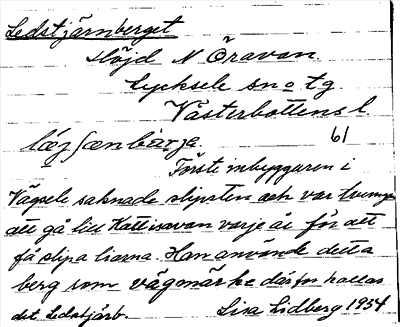 Ledstjärnberget
Höjd N Öravan.
Lycksele sn o tg.
Västerbottens l.
61
Förste inbyggaren i
Vägsele saknade slipsten och var tvungen
att gå till Kattisavan varje år för att
få slipa liarna. Han använde detta
berg som vägmärke därför kallas
det Ledstjärb. Lisa Lidberg 1934